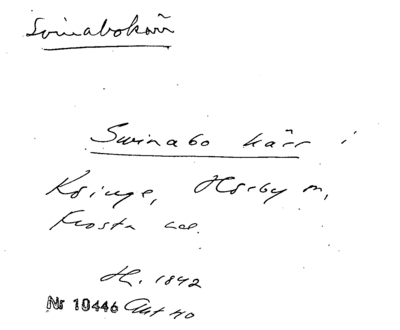 Svinabokärr
Swinabo kärr i
Hörby m,
Frosta
H. 1842
Nr 10446 Akt 40